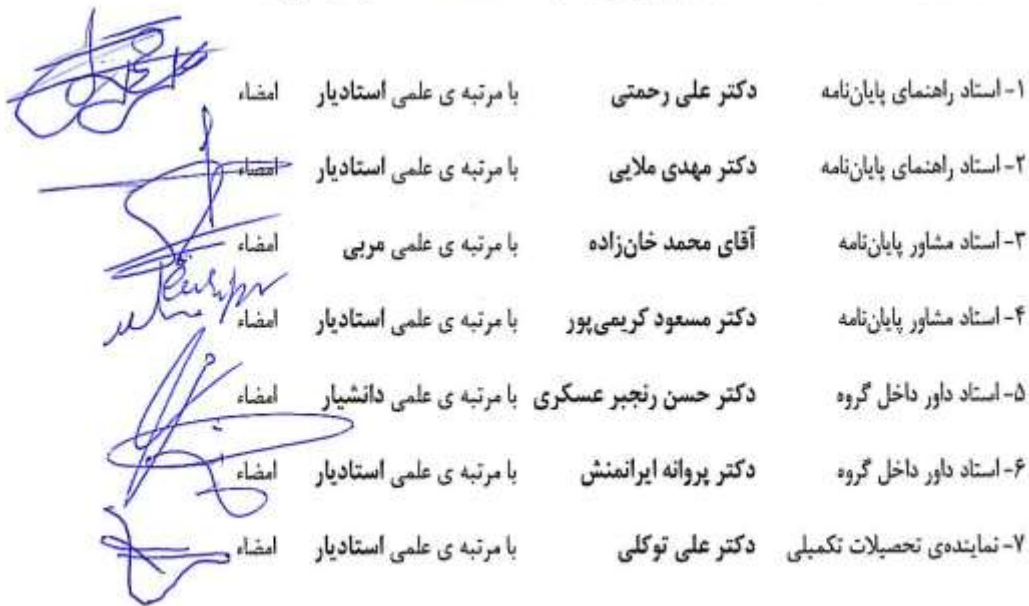 ۱- استاد راهنمای پایان‌نامه دکتر علی رحمتی با مرتبه ی علمی استادیار امضاء
۲- استاد راهنمای پایان‌نامه دکتر مهدی ملایی با مرتبه ی علمی استادیار امضاء
۳- استاد مشاور پایان‌نامه آقای محمد خان‌زاده با مرتبه ی علمی مربی امضاء
۴- استاد مشاور پایان‌نامه دکتر مسعود کریمی‌پور با مرتبه ی علمی استادیار امضاء
۵- استاد داور داخل گروه دکتر حسن رنجبر عسکری با مرتبه ی علمی دانشیار امضاء
۶- استاد داور داخل گروه دکتر پروانه ایرانمنش با مرتبه ی علمی استادیار امضاء
۷- نماینده‌ی تحصیلات تکمیلی دکتر علی توکلی با مرتبه ی علمی استادیار امضاء